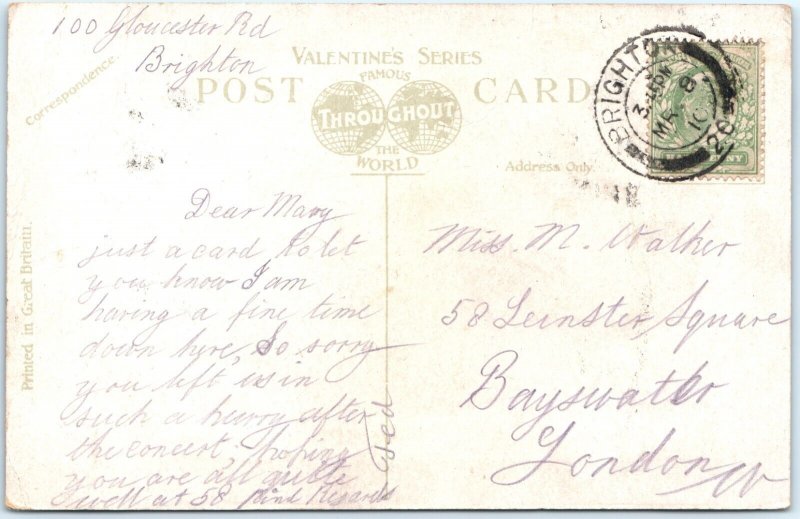 100 Gloucester Rd
Brighton
Correspondence.
VALENTINE'S SERIES
POST CARD
FAMOUS
THROUGHOUT
THE
WORLD
Address Only.
BRIGHTON
3.45PM
MR 8
10
Printed in Great Britain.
Dear Mary
just a card to let
you know I am
having a fine time
down here, So sorry
you left us in
such a hurry after
the concert, hoping
you are all quite
well at 58 Kind Regards
Miss. M. Walker
58 Leinster Square
Bayswater
London W